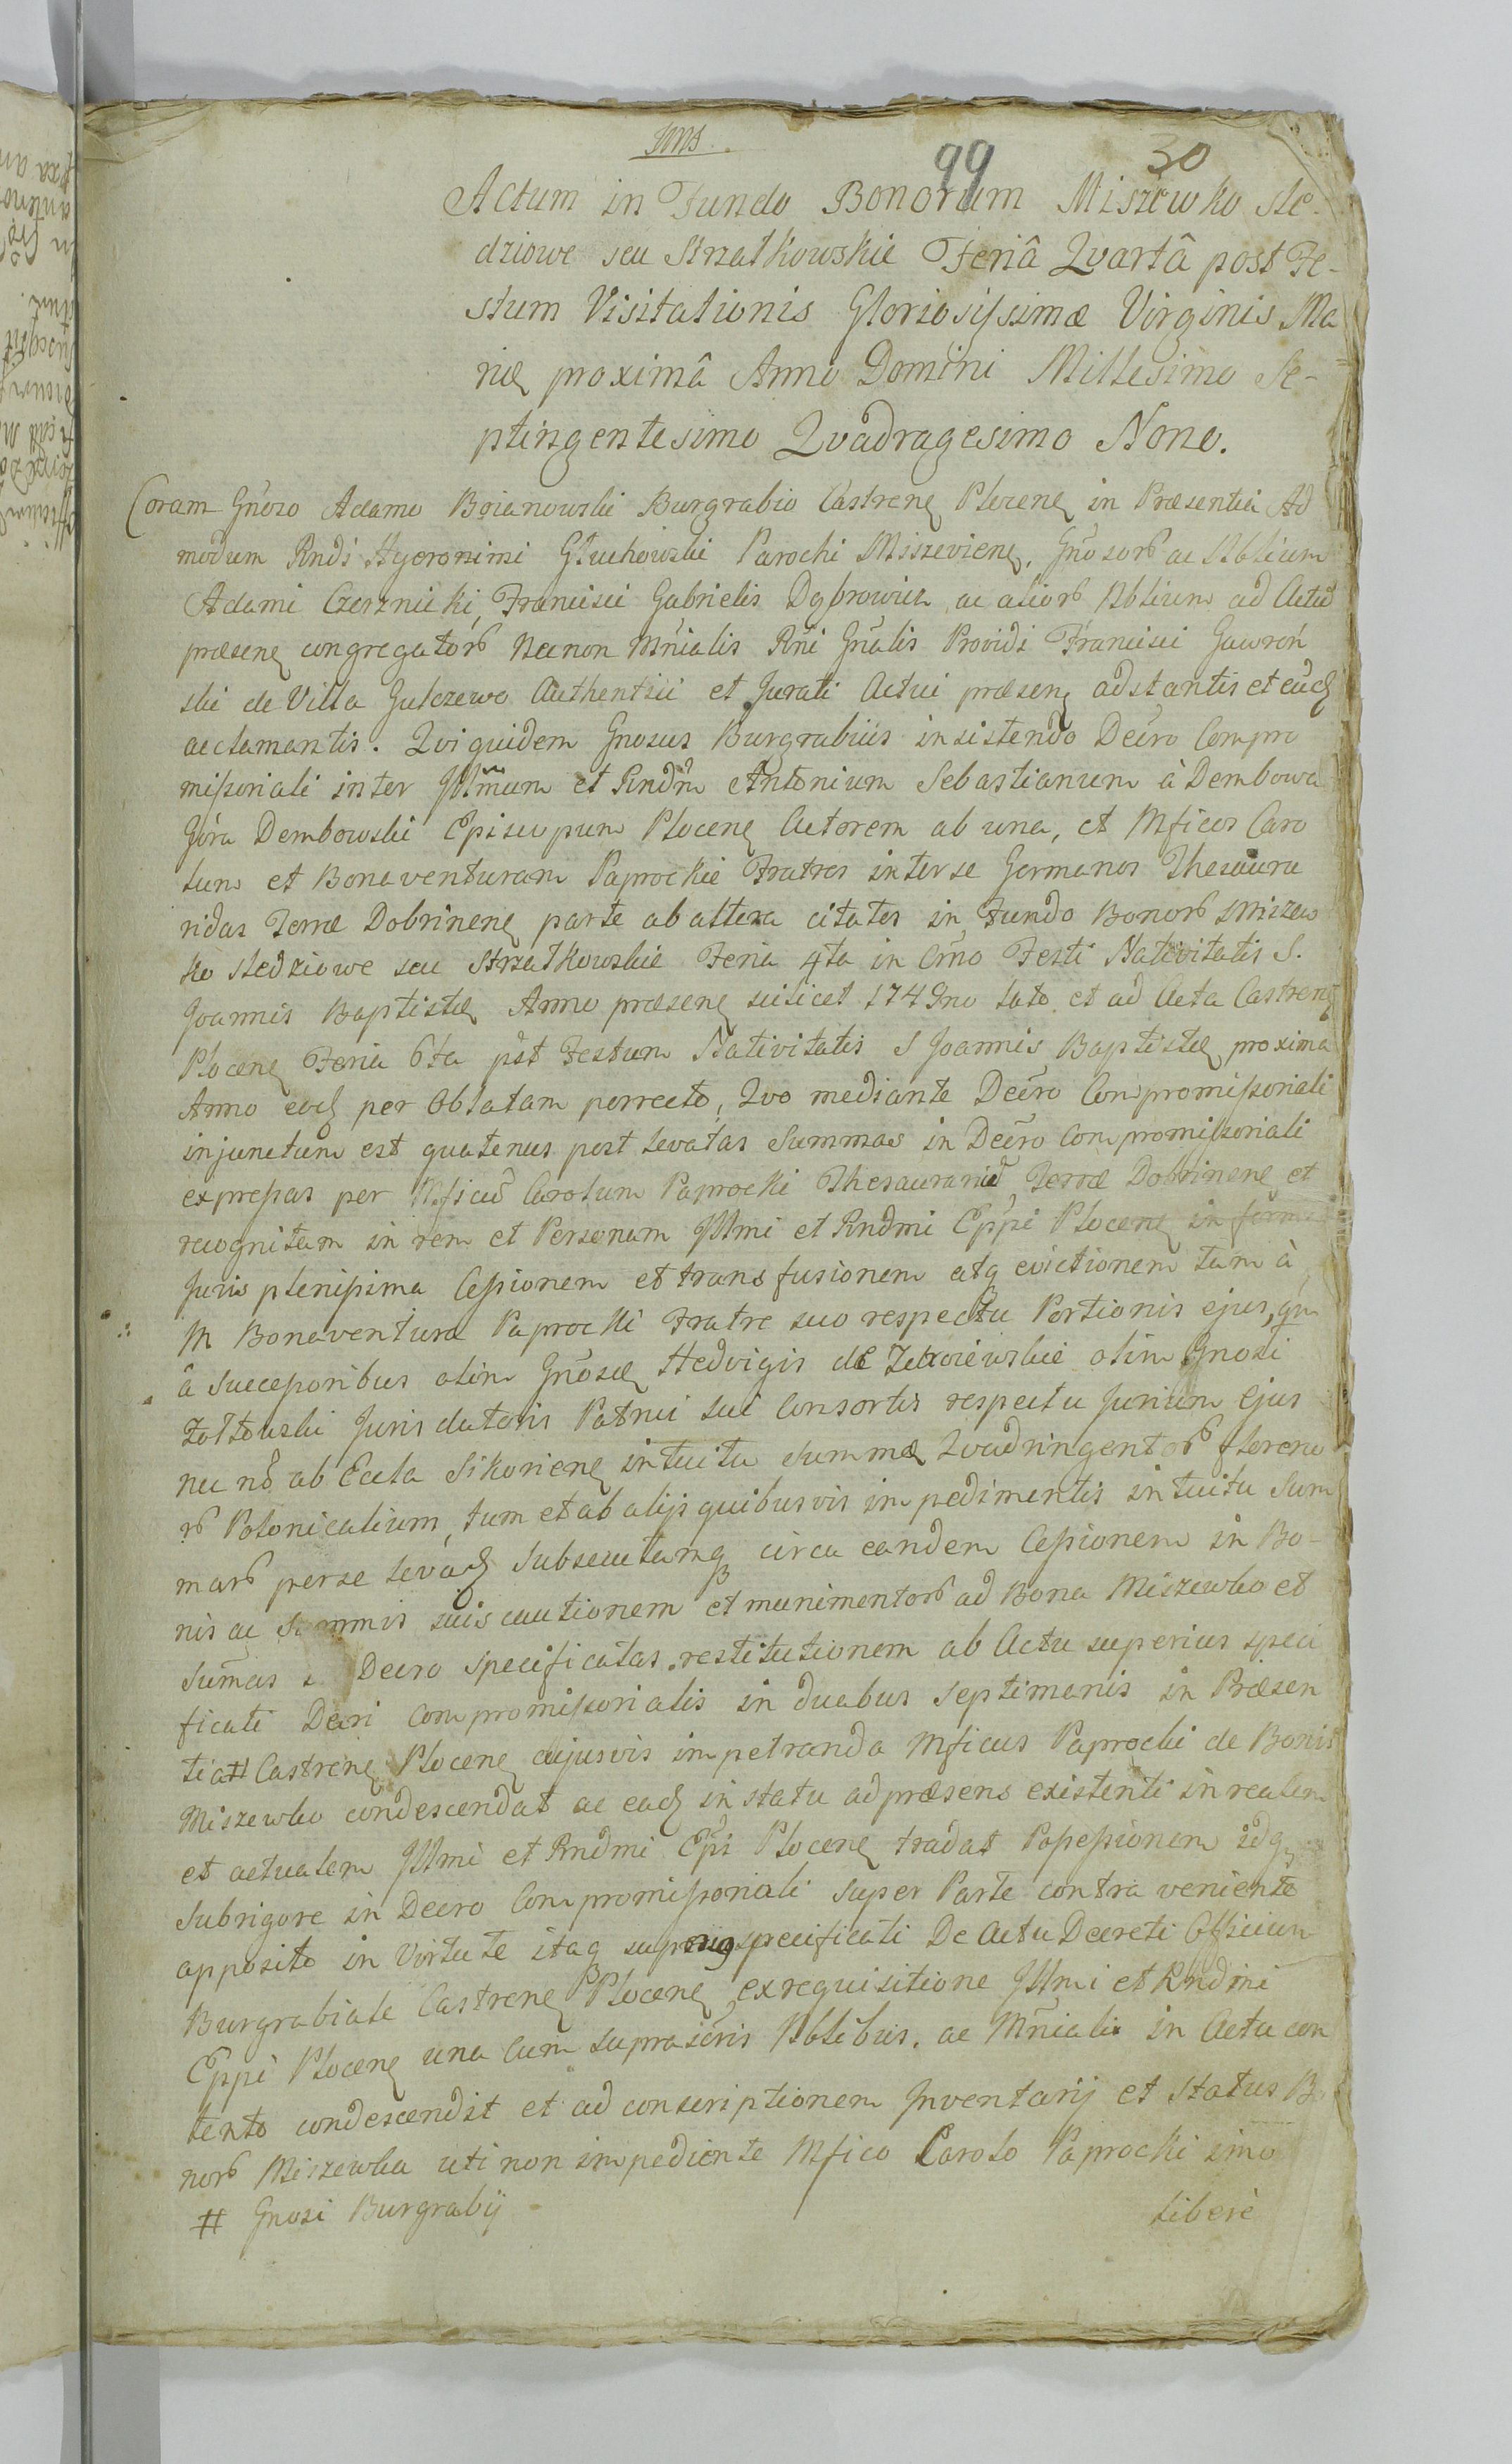 99 30
Actum in Fundo Bonorum Miszewko Ste-
dziowe seu Strzałkowskie Feriâ Qvartâ post Fe-
stum Visitationis Gloriosissimæ Virginis Ma
riæ proximâ Anno Domini Millesimo Se-
ptingentesimo Qvadragesimo Nono.
Coram Gnoso Adamo Boianowski Burgrabio Castrenę Plocenę in Præsentia Ad
modum Rndi Hyeronimi Głuchowski Parochi Miszevienę, Gnosorb ac Nbłium
Adami Czerznicki, Francisci Gabrielis Dąbrowicz ac aliorb Nblium ad Actū
præsenę congregatorb Necnon Mnialis Rni Gnalis Providi Francisci Gawroń
ski de Villa Gulczewo Authentici et Jurati Actui præsenę adstantis et eūdę
acclamantis. Qvi quidem Gnosus Burgrabius insistendo Decro Compro
missoriali inter Jllmum et Rndm Antonium Sebastianum à Dembowa
Góra Dembowski Episcopum Plocenę Actorem ab una, et Mficos Caro
lum et Bonaventuram Paprockie Fratres inter se Germanos Thesaura
ridas Terræ Dobrinenę parte ab altera citatos in Fundo Bonorb Miszew
ko Stedziowe seu Strzałkowskie Feria 4ta in Cmo Festi Nativitatis S.
Joannis Baptistæ Anno præsenę scilicet 1749no lato et ad Acta Castrenę
Plocenę Feria 6ta pst Festum Nativitatis S Joannis Baptistæ proxima
Anno eodę per Oblatam porrecto, Qvo mediante Decro Compromissoriali
injunctum est quatenus post levatas Summas in Decro Compromissoriali
expressas per Mficū Carolum Paprocki Thesaurariū Terræ Dobrinenę et
recognitam in rem et Personam Jllmi et Rndmi Eppi Plocenę in forma
Juris plenissima Cessionem et transfusionem atq evictionem tam à
M Bonaventura Paprocki Fratre suo respectu Portionis ejus, qm
â Successoribus olim Gnosæ Hedvigis de olim Gnosi
Zołtowski Juris datoris Patrui sui Consortis respectu Jurium Ejus
nec nō ab Eccla Sikorienę intuitu summæ Qvadringentorb floreno
rb Polonicalium, tum et ab alijs quibusvis impedimentis intuitu Sum
marb per se levadę subsecutamq circa eandem Cessionem in Bo-
nis ac Summis suis cautionem et munimentorb ad Bona Miszewko et
Sumas Decro specificatas restitutionem ab Actu superius speci
ficati Decri Compromissorialis in duabus septimanis in Præsen
tia # Castrenę Plocenę cujusvis impetranda Mficus Paprocki de Bonis
Miszewko condescendat ac eadę in statu ad præsens existenti in realem
et actualem Jllmi et Rndmi Eppi Plocenę tradat Possessionem idq
sub rigore in Decro Compromissoriali super Parte contra veniente
apposito in Virtute itaq superius specificati De Actu Decreti Officium
Burgrabiale Castrenę Plocenę ex requisitione Jllmi et Rndmi
Eppi Plocenę una cum suprascris Nblibus. ac Mniali in Actu con
tento condescendit et ad conscriptionem Inventarij et Status Bo
norb Miszewka uti non impediente Mfico Carolo Paprocki imo
# Gnosi Burgrabij
liberè